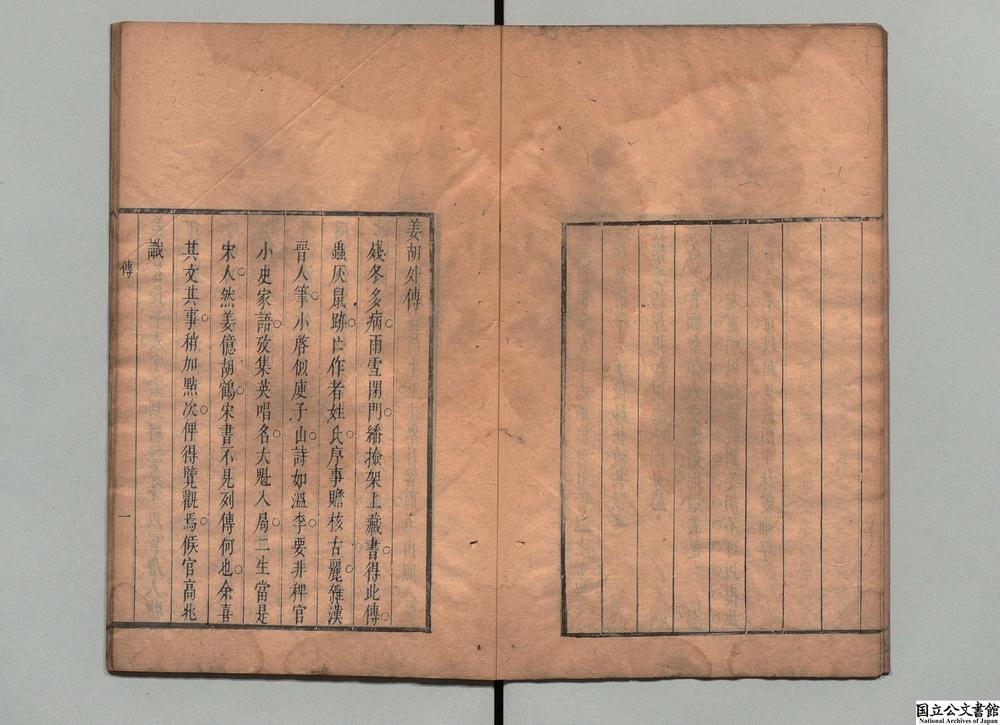 姜胡外傳
殘冬多病雨雪閉門繙撿架上藏書得此傳
蟲灰鼠跡亡作者姓氏序事贍核古麗雜漢
晉人筆小啓似庾子山詩如溫李要非稗官
小史家語攷集英唱名大魁入局二生當是
宋人然姜億胡鶴宋書不見列傳何也余喜
其文其事稍加點次俾得覽觀焉候官高兆
識
傳
一
国立公文書館
National Archives of Japan